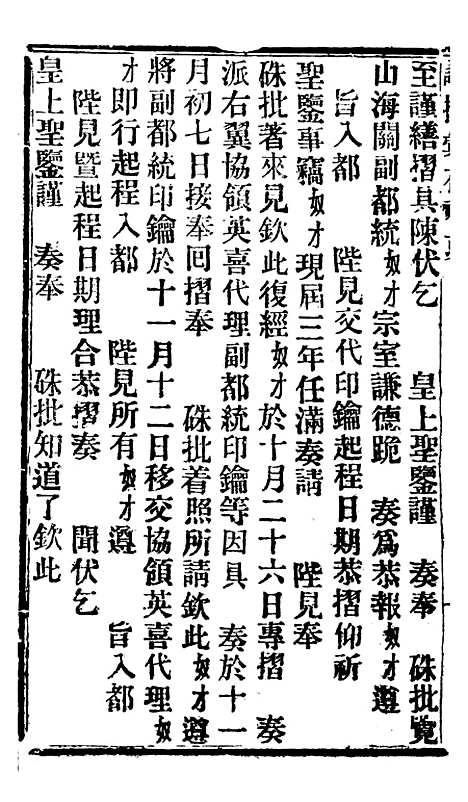 至謹繕摺具陳伏乞　　皇上聖鑒謹　　奏奉　　硃批覽
山海關副都統奴才宗室謙德跪　　奏爲恭報奴才遵
旨入都　　陛見交代印鑰起程日期恭摺仰祈
聖鑒事竊奴才現屆三年任滿奏請　　陛見奉
硃批著來見欽此復經奴才於十月二十六日專摺　　奏
派右翼協領英喜代理副都統印鑰等因具　　奏於十一
月初七日接奉回摺奉　　硃批着照所請欽此奴才遵
將副都統印鑰於十一月十二日移交協領英喜代理奴
才即行起程入都　　陛見所有奴才遵　　旨入都
陛見暨起程日期理合恭摺奏　　聞伏乞
皇上聖鑒謹　　奏奉　　硃批知道了欽此